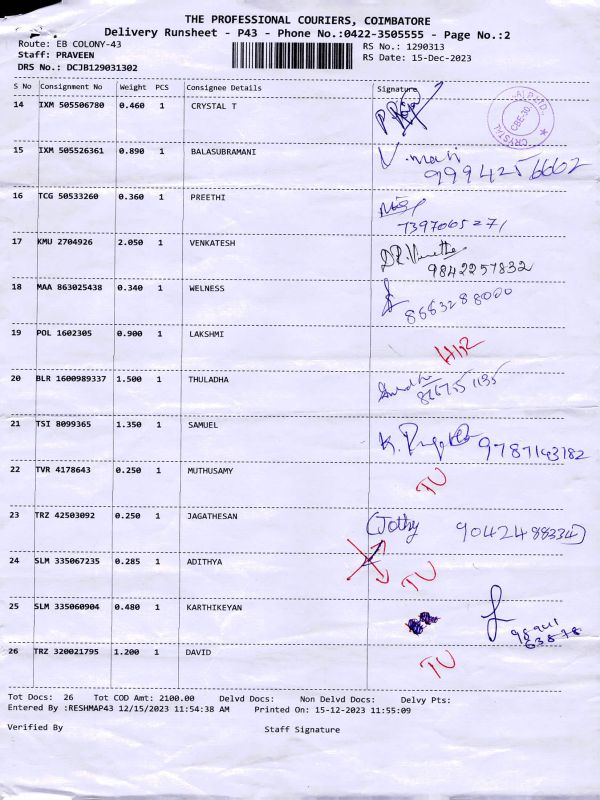 THE PROFESSIONAL COURIERS, COIMBATORE
Delivery Runsheet - P43 - Phone No.:0422-3505555 - Page No.:2
Route: EB COLONY-43
RS No.: 1290313
Staff: PRAVEEN
RS Date: 15-Dec-2023
DRS No.: DCJB129031302
S No Consignment No Weight PCS Consignee Details Signature
14 IXM 505506780 0.460 1 CRYSTAL T
CBE-30
CRYSTAL
15 IXM 505526361 0.890 1 BALASUBRAMANI V. mani
9994256602
16 TCG 50533260 0.360 1 PREETHI
7397065271
17 KMU 2704926 2.050 1 VENKATESH
9842257832
18 MAA 863025438 0.340 1 WELNESS
8883288000
19 POL 1602305 0.900 1 LAKSHMI
20 BLR 1600989337 1.500 1 THULADHA
21 TSI 8099365 1.350 1 SAMUEL
9787143182
22 TVR 4178643 0.250 1 MUTHUSAMY TU
23 TRZ 42503092 0.250 1 JAGATHESAN (Jothy 9042488334)
24 SLM 335067235 0.285 1 ADITHYA TU
25 SLM 335060904 0.480 1 KARTHIKEYAN
26 TRZ 320021795 1.200 1 DAVID TU
Tot Docs: 26 Tot COD Amt: 2100.00 Delvd Docs: Non Delvd Docs: Delvy Pts:
Entered By :RESHMAP43 12/15/2023 11:54:38 AM Printed On: 15-12-2023 11:55:09
Verified By Staff Signature